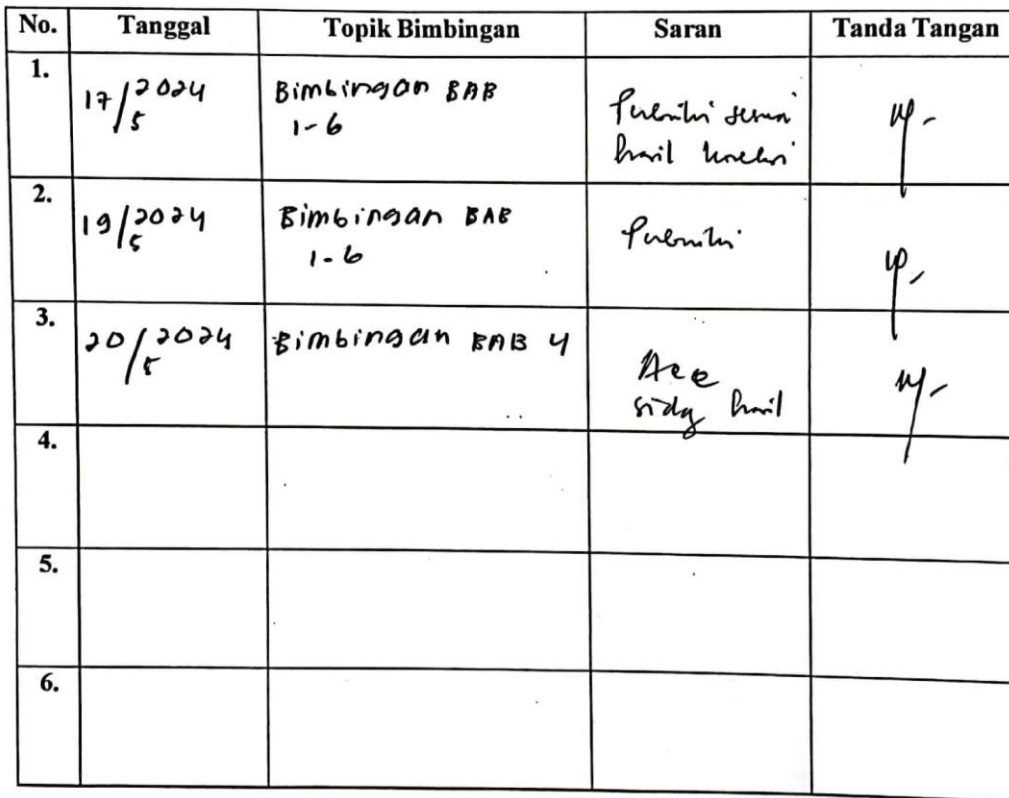 No. Tanggal Topik Bimbingan Saran Tanda Tangan
1. 17/5 2024 Bimbingan BAB 1-6 Perbaiki sesuai hasil koreksi
2. 19/5 2024 Bimbingan BAB 1-6 Perbaiki
3. 20/5 2024 Bimbingan BAB 4 Acc sidg hasil
4.
5.
6.